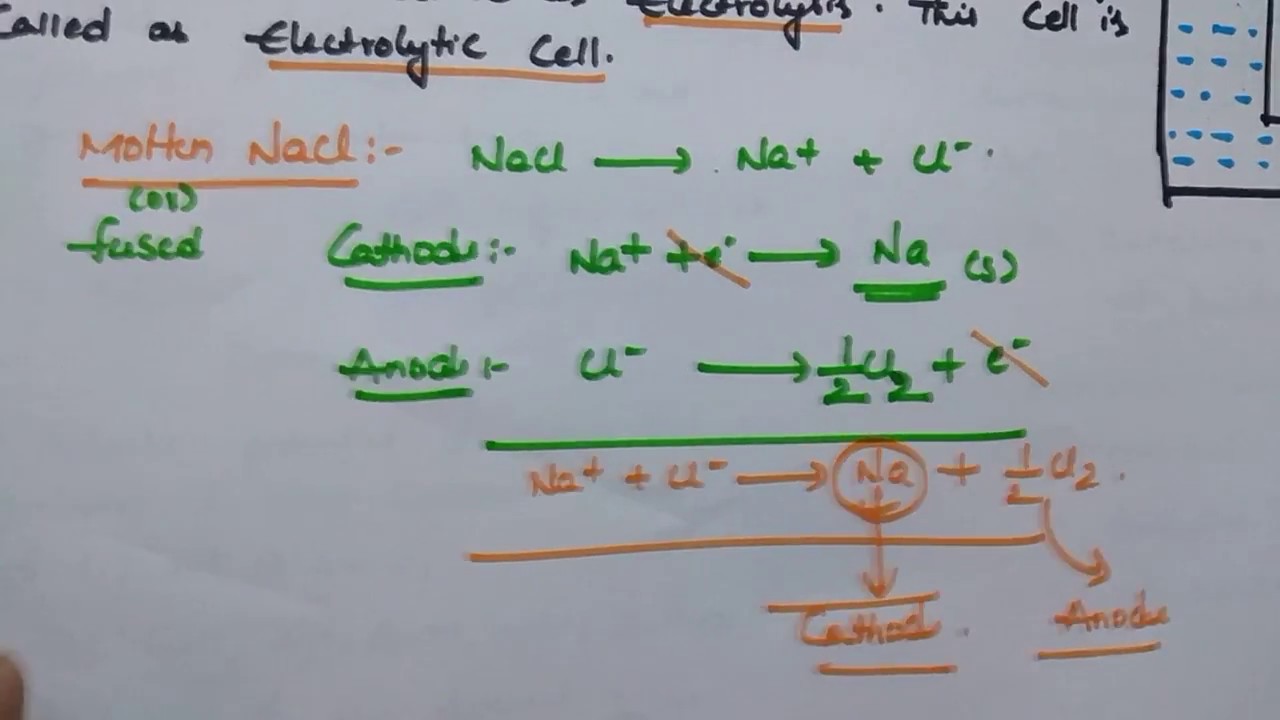 Electrolysis. This Cell is
Called as Electrolytic Cell.
Molten NaCl:- NaCl ⟶ Na+ + Cl-.
(or)
fused
Cathode:- Na+ + e- ⟶ Na (s)
Anode:- Cl- ⟶ 1/2 Cl2 + e-
Na+ + Cl- ⟶ Na + 1/2 Cl2.
Cathode. Anode